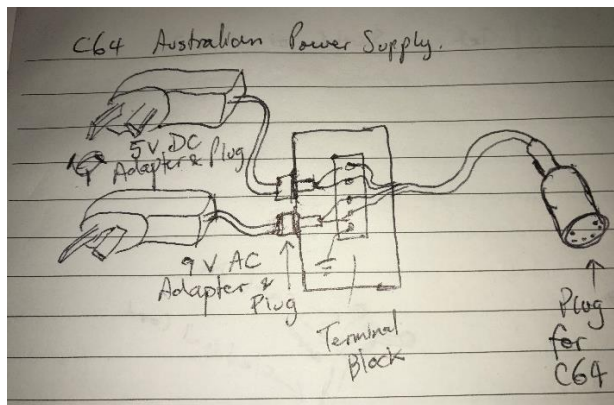 C64 Australian Power Supply.
5V DC
Adapter & Plug
9V AC
Adapter &
Plug
Terminal
Block
Plug
for
C64